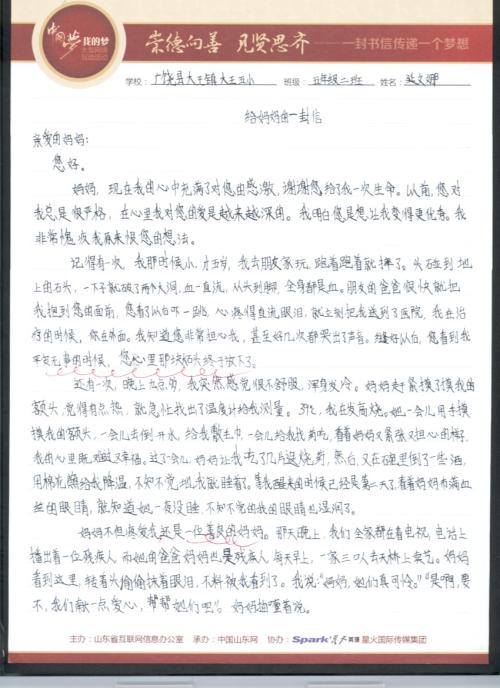 中国梦 我的梦
大型网络
互动活动
崇德向善 见贤思齐 ——一封书信传递一个梦想
学校: 广饶县大王镇大王小 班级: 五年级二班 姓名: 文娜
给妈妈的一封信
亲爱的妈妈:
您好。
妈妈,现在我的心中充满了对您的感激,谢谢您给了我一次生命。以前,您对
我总是很严格,在心里我对您的爱是越来越深的。我明白您是想让我变得更优秀。我
非常愧疚我原来恨您的想法。
记得有一次,我那时候小,才五岁,我去朋友家玩,跑着跑着就摔了。头碰到地
上的石头,一下子就破了两个大洞,血一直流,从头到脚,全身都是血。朋友的爸爸很快就把
我抱到您的面前,您看了以后吓一跳,心疼得直流眼泪,就立刻把我送到了医院,我在治
疗的时候,你在外面。我知道您非常担心我,甚至好几次都哭出了声音。缝好以后,您看到我
平安无事的时候,您心里那块石头终于放下了。
还有一次,晚上 点多,我突然感觉很不舒服,浑身发冷。妈妈赶紧摸了摸我的
额头,觉得有点热,就急忙找出了温度计给我测量。39℃,我在发高烧。她一会儿用手摸
摸我的额头,一会儿去倒开水,给我敷毛巾,一会儿给我找药吃,看着妈妈又紧张又担心的样子,
我的心里既难过又幸福。过了一会儿,妈妈让我吃了几片退烧药,然后,又在碗里倒了一些酒,
用棉花蘸给我降温,不知不觉地我就睡着了。等我醒来的时候已经是第二天了,看着妈妈布满血
丝的眼睛,就知道她一夜没睡,不知不觉的我的眼睛也湿润了。
妈妈不但疼爱我还是一位善良的妈妈。那天晚上,我们全家都在看电视,电视上
播出着一位残疾人,而她的爸爸妈妈也是残疾人,每天早上,一家三口人去天桥上卖艺。妈妈
看到这里,转着头偷偷抹着眼泪,不料被我看到了。我说:“妈妈,她们真可怜。”“是啊,要
不,我们献一点爱心,帮帮她们吧”。妈妈 着说。
主办:山东省互联网信息办公室 承办:中国山东网 协办:Spark星火英语 星火国际传媒集团